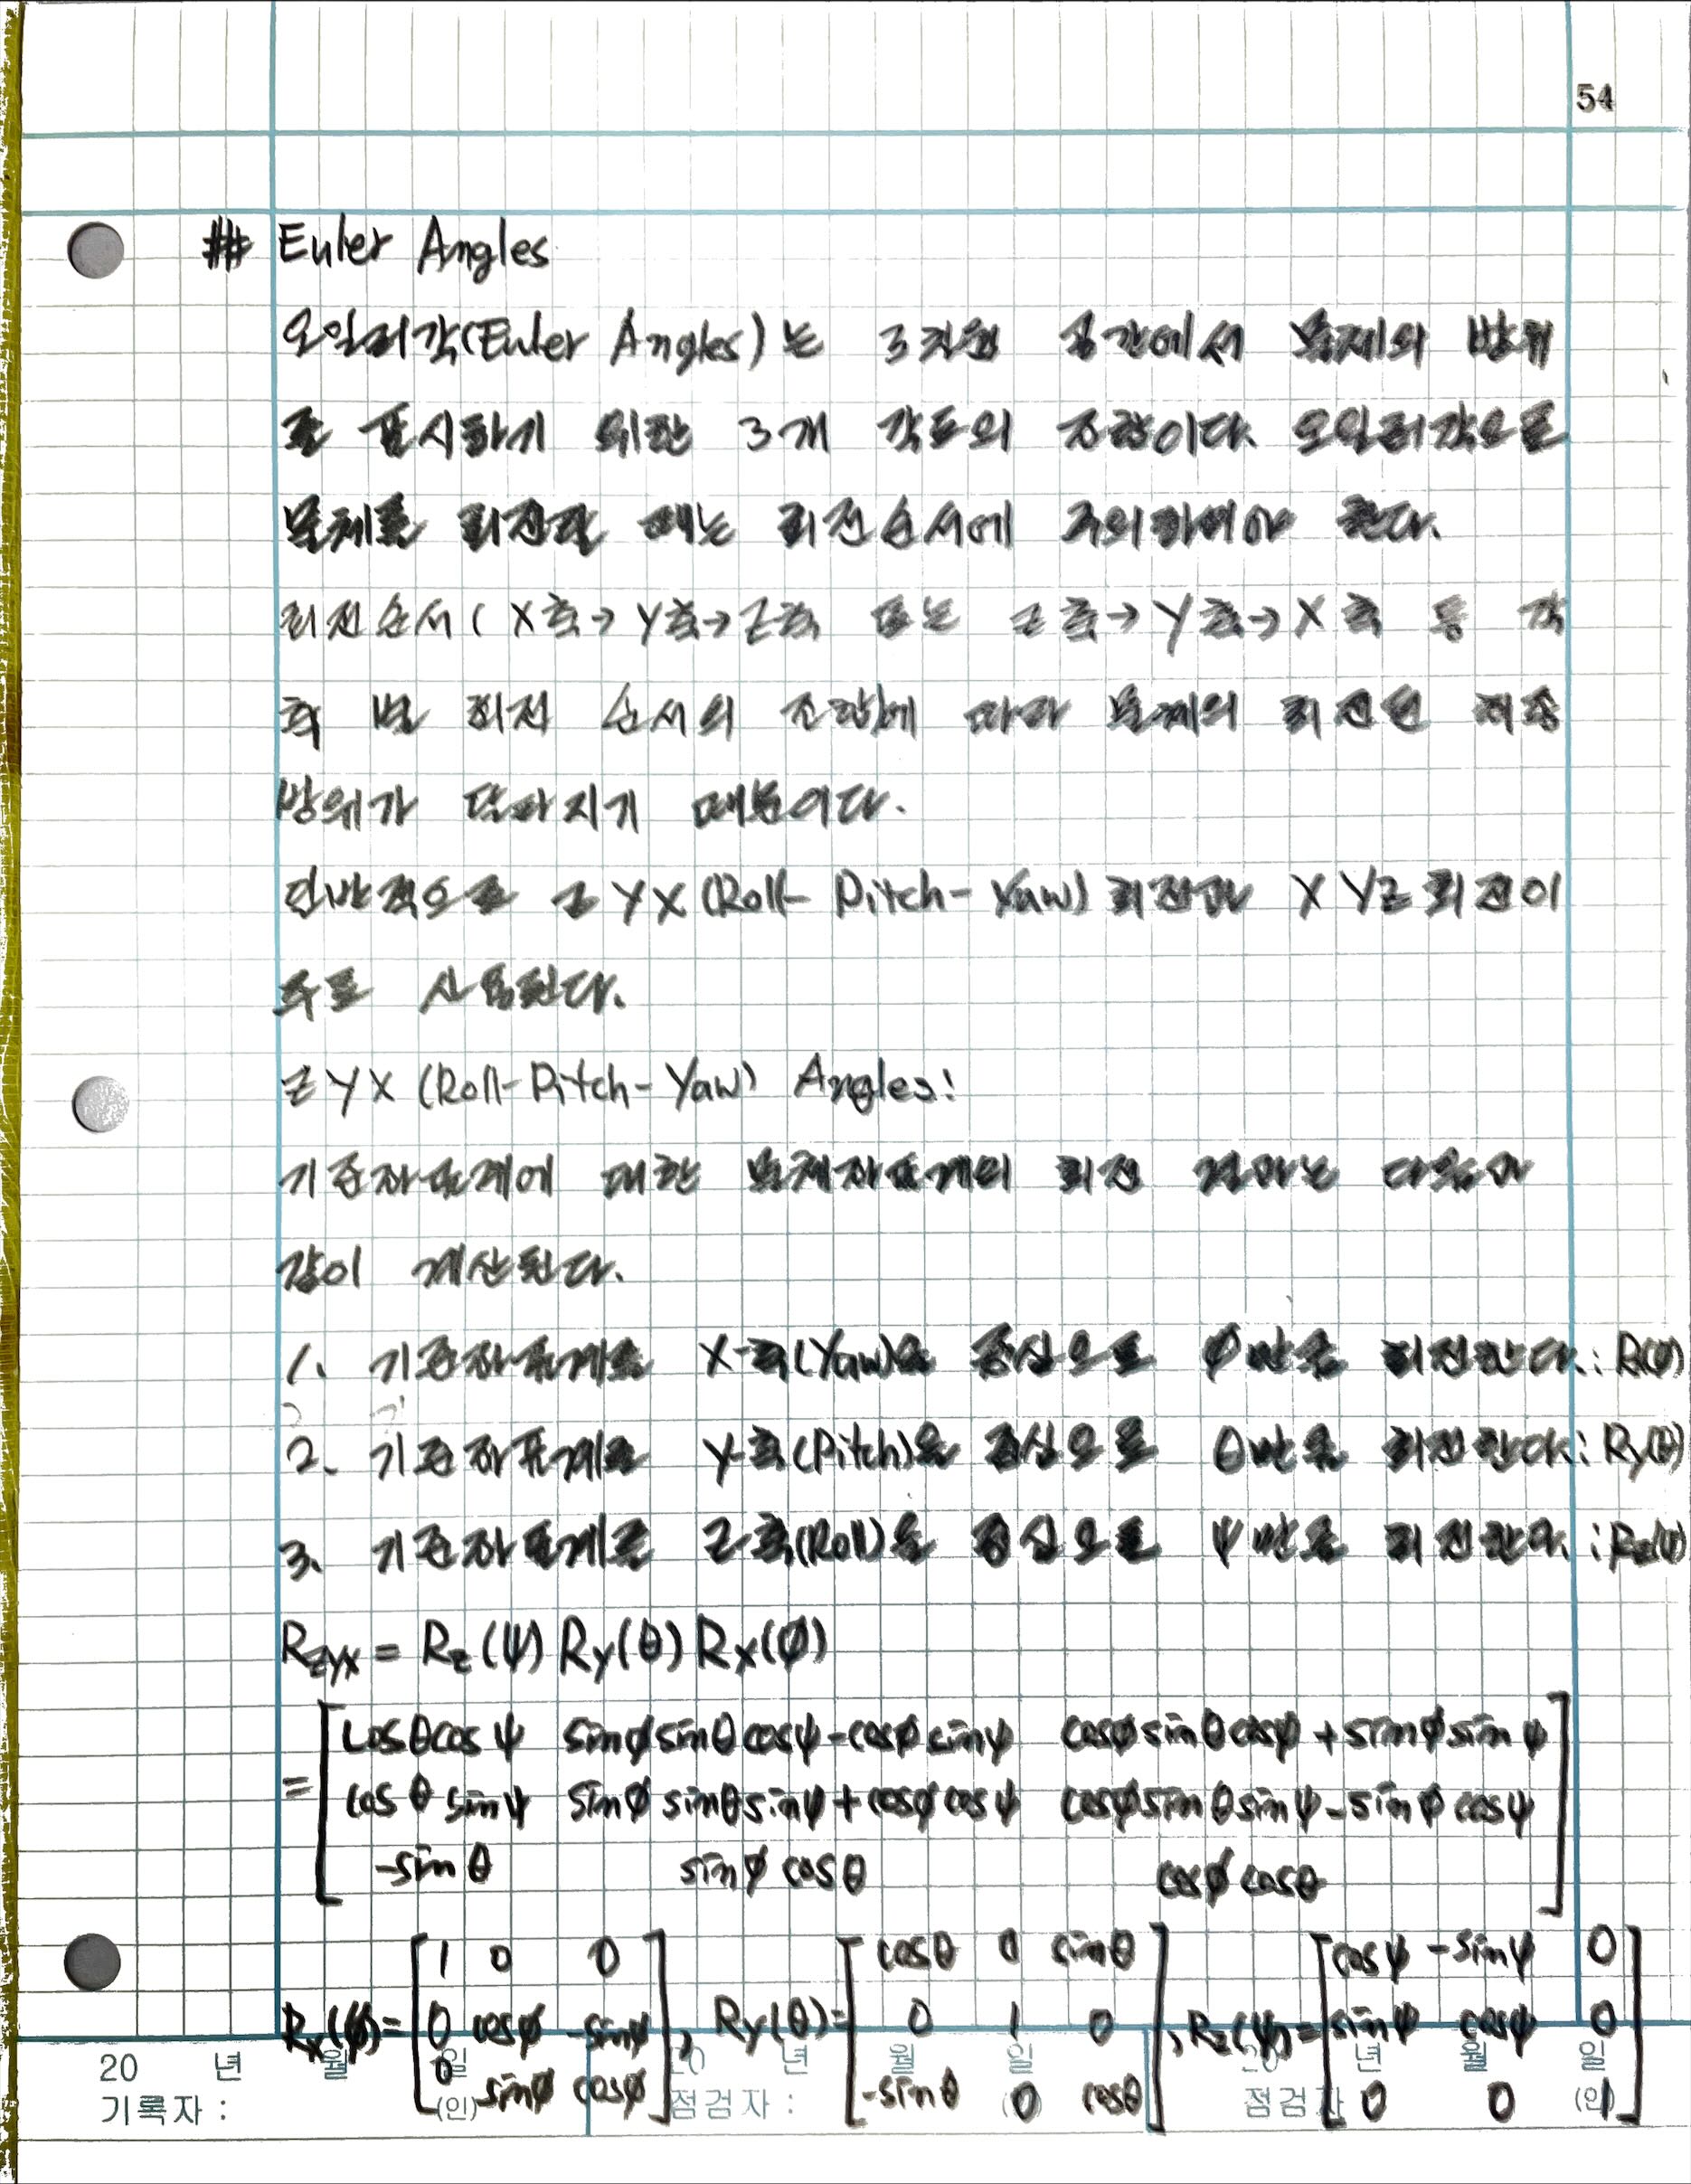 54
## Euler Angles
오일러각(Euler Angles)는 3차원 공간에서 물체의 방위
를 표시하기 위한 3개 각도의 조합이다. 오일러각으로
물체를 회전할 때는 회전순서에 주의하여야 한다.
회전순서( X축→Y축→Z축 또는 Z축→Y축→X축 등 각
축 별 회전 순서의 조합)에 따라 물체의 회전된 최종
방위가 달라지기 때문이다.
일반적으로 ZYX(Roll-Pitch-Yaw) 회전과 XYZ회전이
주로 사용된다.
ZYX (Roll-Pitch-Yaw) Angles:
기준좌표계에 대한 물체좌표계의 회전 결과는 다음과
같이 계산된다.
1. 기준좌표계를 X-축(Yaw)을 중심으로 φ만큼 회전한다.: Rx(φ)
2. 기준좌표계를 Y-축(Pitch)을 중심으로 θ만큼 회전한다.: Ry(θ)
3. 기준좌표계를 Z축(Roll)을 중심으로 ψ만큼 회전한다. : Rz(ψ)
Rzyx = Rz(ψ) Ry(θ) Rx(φ)
cosθcosψ sinφsinθcosψ-cosφsinψ cosφsinθcosψ+sinφsinψ
= cosθsinψ sinφsinθsinψ+cosφcosψ cosφsinθsinψ-sinφcosψ
-sinθ sinφcosθ cosφcosθ
1 0 0 cosθ 0 sinθ cosψ -sinψ 0
Rx(φ)= 0 cosφ -sinφ , Ry(θ)= 0 1 0 , Rz(ψ)= sinψ cosψ 0
0 sinφ cosφ -sinθ 0 cosθ 0 0 1
20 년 월 일 20 년 월 일 20 년 월 일
기록자 : (인) 점검자 : (인) 점검자 (인)